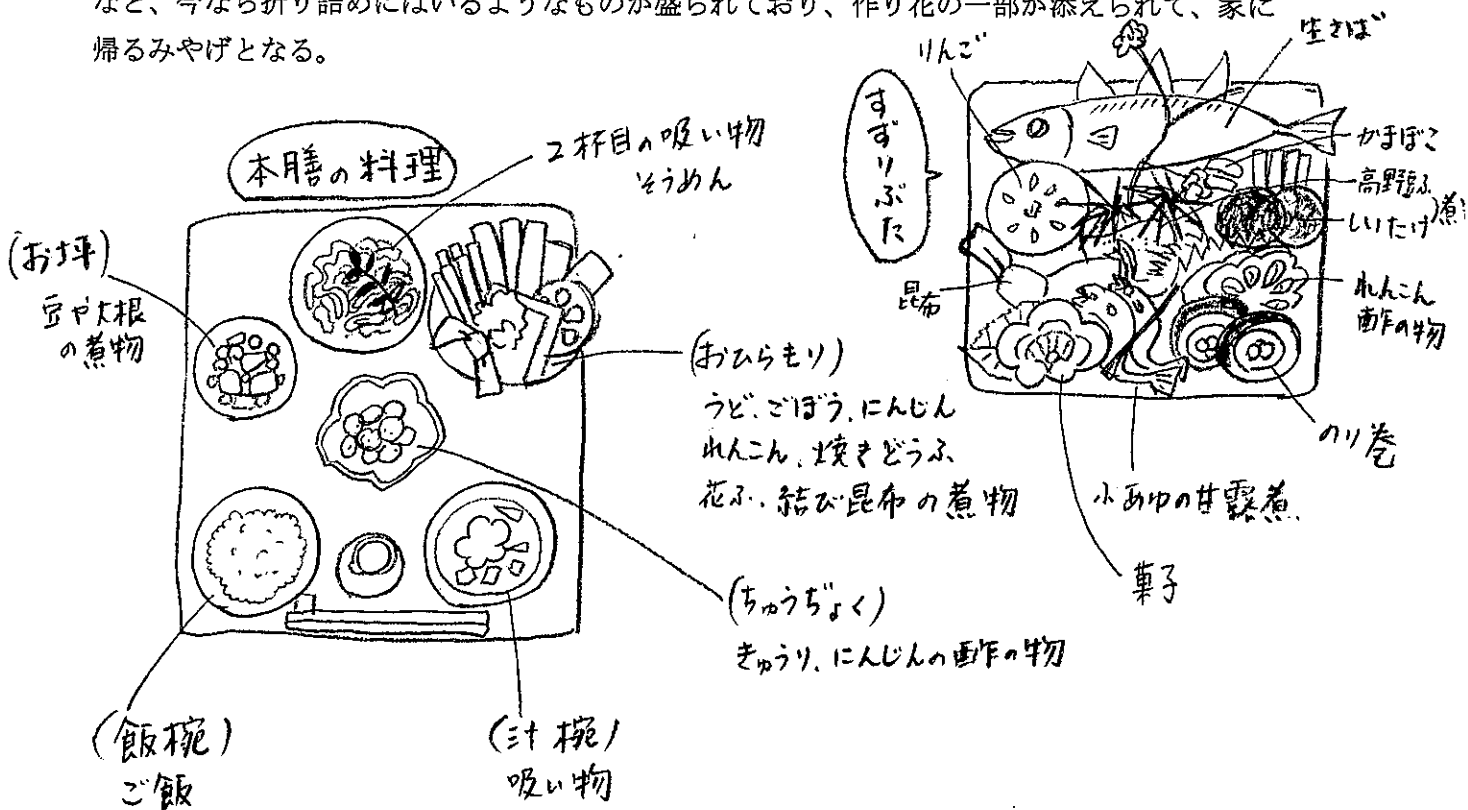 など、今なら折り詰めにはいるようなものが盛られており、作り花の一部が添えられて、家に
帰るみやげとなる。
本膳の料理
2杯目の吸い物
そうめん
(お坪)
豆や大根
の煮物
(おひらもり)
うど、ごぼう、にんじん
れんこん、焼きどうふ
花ふ、結び昆布の煮物
(ちゅうぢょく)
きゅうり、にんじんの酢の物
(飯椀)
ご飯
(汁椀)
吸い物
すずりぶた
りんご
生さば
かまぼこ
高野豆ふ
しいたけ
煮
れんこん
酢の物
昆布
のり巻
小あゆの甘露煮
菓子